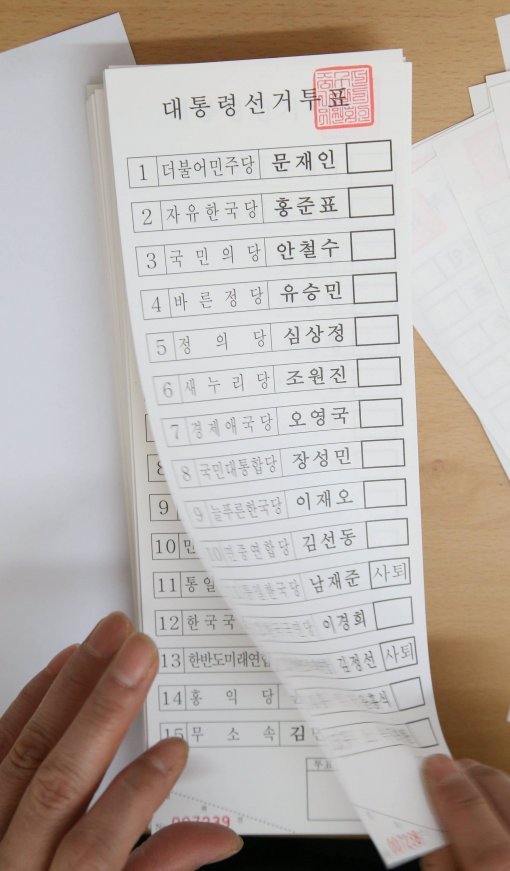 대통령선거투표
1 더불어민주당 문재인
2 자유한국당 홍준표
3 국민의당 안철수
4 바른정당 유승민
5 정의당 심상정
6 새누리당 조원진
7 경제애국당 오영국
8 국민대통합당 장성민
9 늘푸른한국당 이재오
10 민중연합당 김선동
11 통일 남재준 사퇴
12 한국국 이경희
13 한반도미래연합 김정선 사퇴
14 홍익당
15 무소속 김민
투표
007239